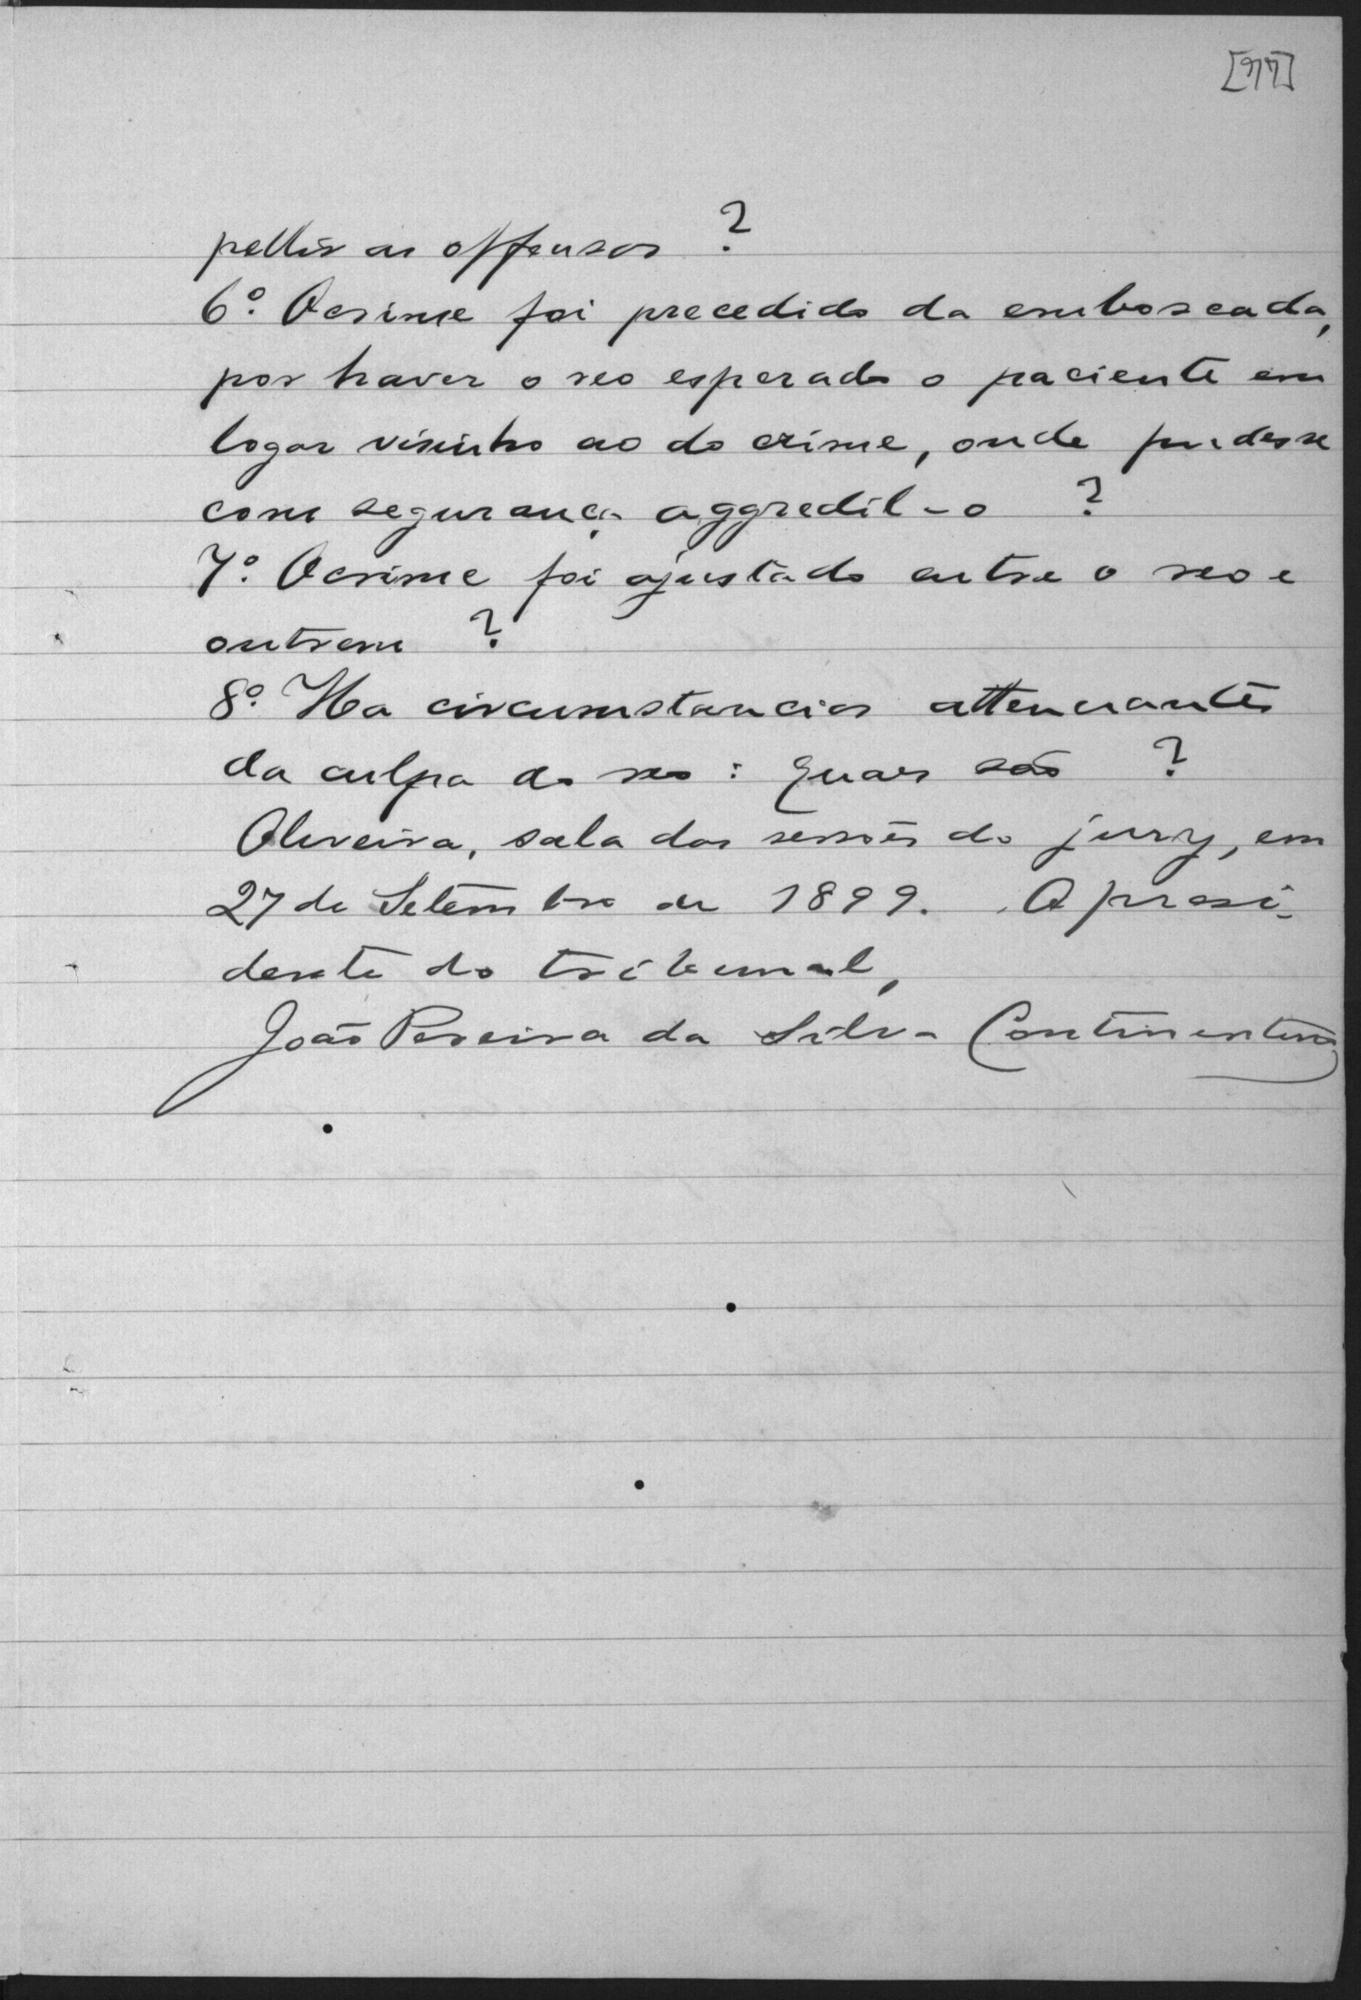 [77]
pellir as offensas ?
6º. O crime foi precedido da emboscada,
por haver o reo esperado o paciente em
logar visinho ao do crime, onde pudesse
com segurança aggredil-o ?
7º. O crime foi ajustado entre o reo e
outrem ?
8º. Ha circumstancias attenuantes
da culpa do reo : Quaes são ?
Oliveira, sala das sessões do jury, em
27 de Setembro de 1899. O presi-
dente do tribunal,
João Pereira da Silva Continentino